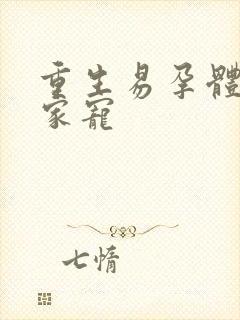 重生易孕體
家寵
七惰